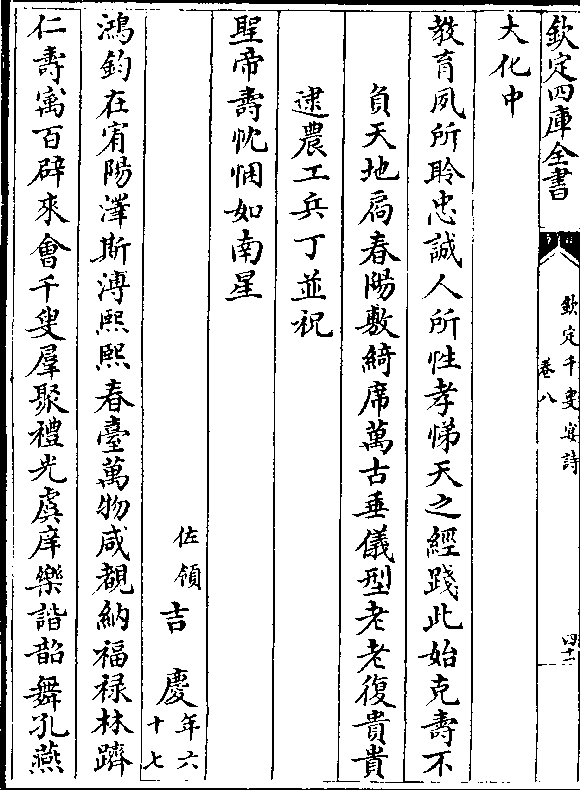 欽定四庫全書
欽定千叟宴詩
卷八
四十二
大化中
教育夙所聆忠誠人所性孝悌天之經踐此始克壽不
負天地扃春陽敷綺席萬古垂儀型老老復貴貴
逮農工兵丁並祝
聖帝壽忱悃如南星
佐領吉慶年六十七
鴻鈞在宥陽澤斯溥熙熙春臺萬物咸覩納福禄林躋
仁壽㝢百辟來會千叟羣聚禮光虞庠樂諧韶舞孔燕